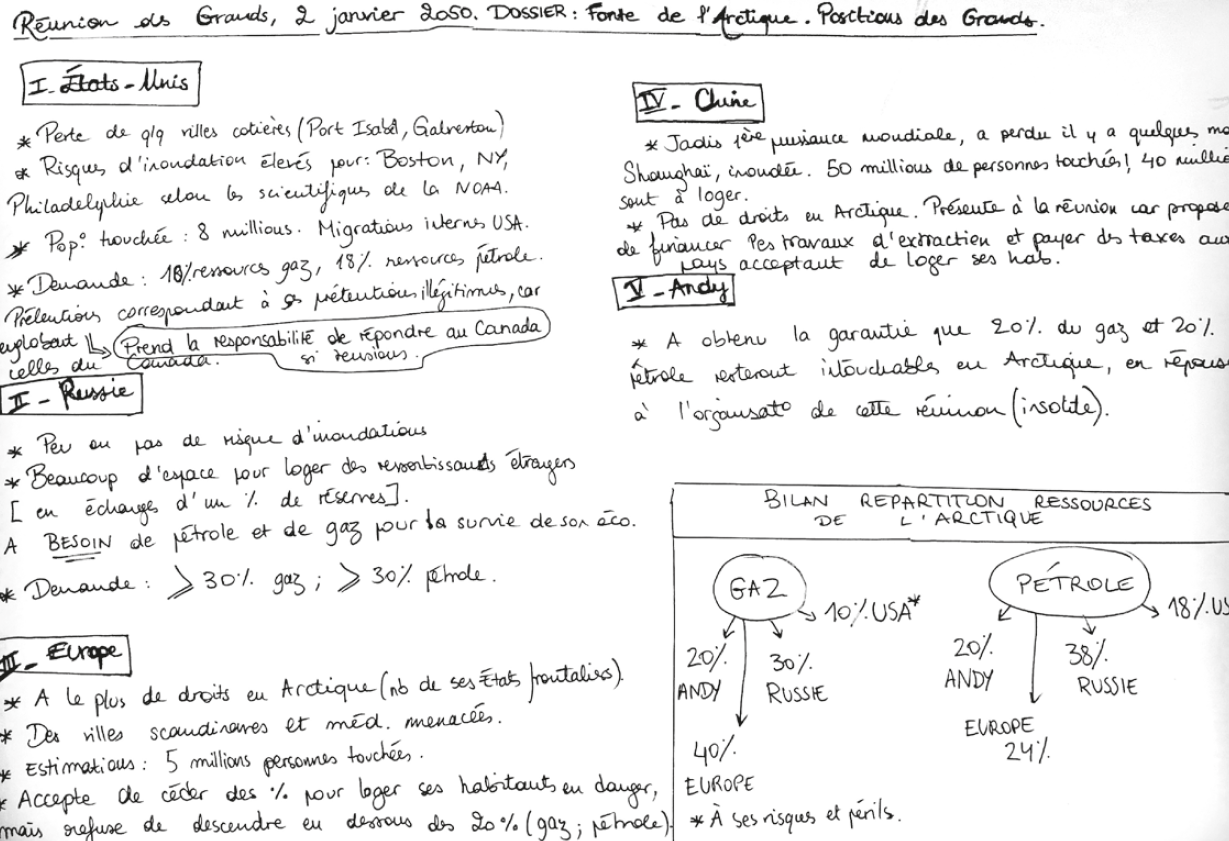 Réunion des Grands, 2 janvier 2050. DOSSIER : Fonte de l'Arctique. Positions des Grands.
I. États-Unis
* Perte de q/q villes cotières (Port Isabel, Galveston)
* Risques d'inondation élevés pour : Boston, NY,
Philadelyhie selon les scientifiques de la NOAA.
* Pop° touchée : 8 millions. Migrations internes USA.
* Demande : 10% ressources gaz, 18% ressources pétrole.
Prétentions correspondant à ses prétentions illégitimes, car
englobant
celles du Canada.
Prend la responsabilité de répondre au Canada
si tensions.
II - Russie
* Peu ou pas de risque d'inondations
* Beaucoup d'espace pour loger des ressortissants étrangers
[en échange d'un % de réserves].
A BESOIN de pétrole et de gaz pour la survie de son éco.
* Demande : ⩾ 30% gaz ; ⩾ 30% pétrole.
III - Europe
* A le plus de droits en Arctique (nb de ses États frontaliers).
* Des villes scandinaves et méd. menacées.
* Estimations : 5 millions personnes touchées.
* Accepte de céder des % pour loger ses habitants en danger,
mais refuse de descendre en dessous des 20% (gaz ; pétrole).
IV - Chine
* Jadis 1ère puissance mondiale, a perdu il y a quelques mo
Shanghaï, inondée. 50 millions de personnes touchées ! 40 millio
sont à loger.
* Pas de droits en Arctique. Présente à la réunion car propose
de financer les travaux d'extraction et payer des taxes aux
pays acceptant de loger ses hab.
V - Andy
* A obtenu la garantie que 20% du gaz et 20%
pétrole resteront intouchables en Arctique, en répons
à l'organisat° de cette réunion (insolite).
BILAN REPARTITION RESSOURCES
DE L'ARCTIQUE
GAZ
10% USA*
20% ANDY
30% RUSSIE
40% EUROPE
PÉTROLE
18% US
20% ANDY
38% RUSSIE
EUROPE 24%
* À ses risques et périls.